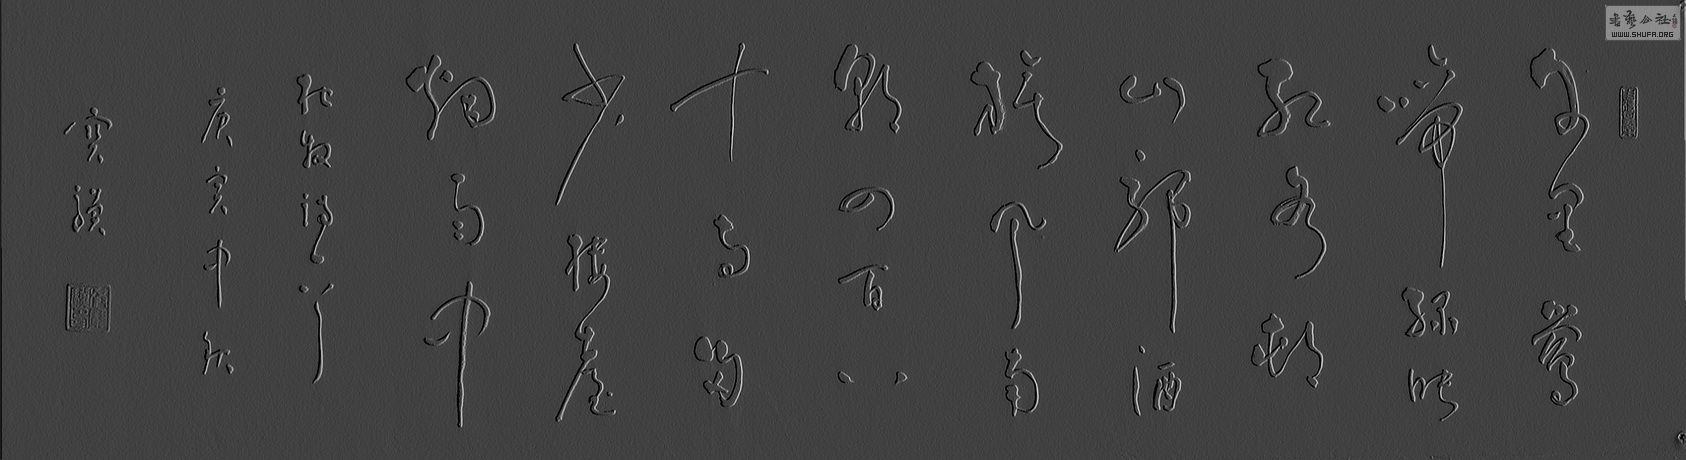 千里鶯
啼綠映
紅水村
山郭酒
旗風南
朝四百八
十寺多
少樓臺
煙雨中
杜牧詩
庚寅中秋
书艺公社
WWW.SHUFA.ORG